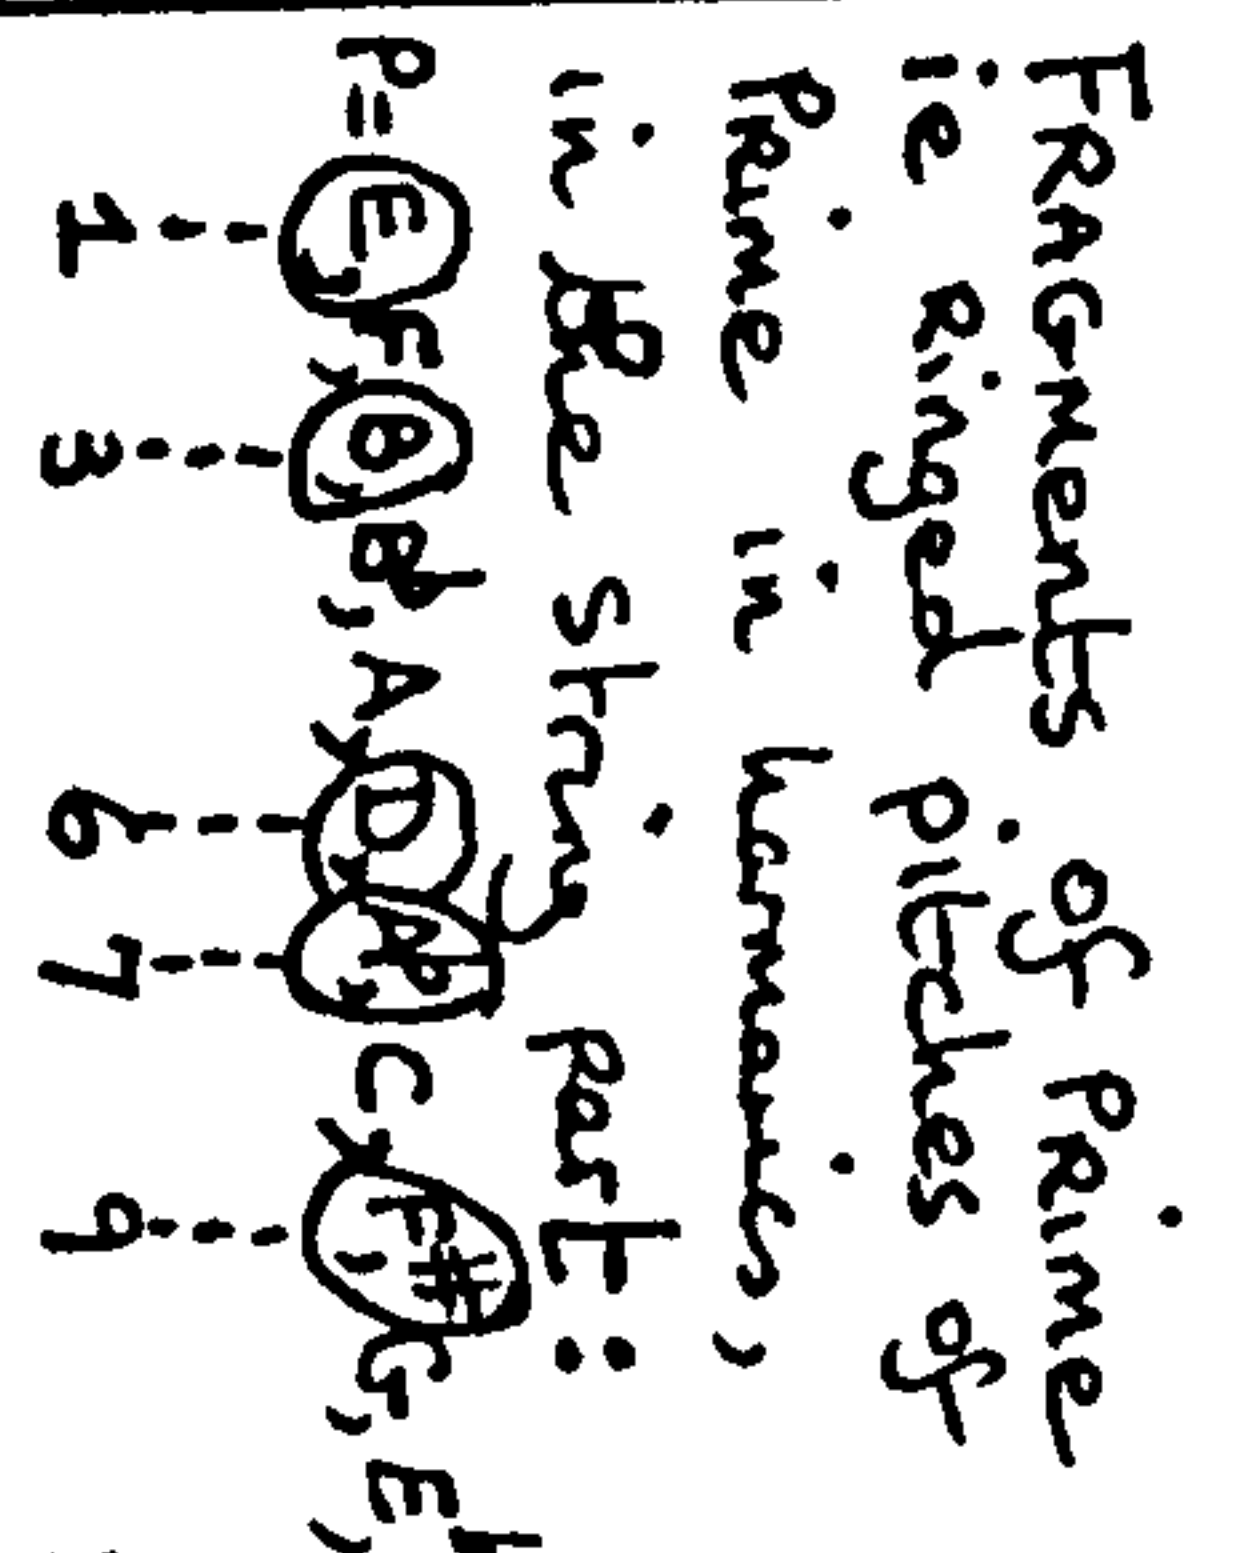 FRAGMents of PRime
ie Ringed pitches of
PRime in harmonics,
in the string part:
P= E, F, B, B♭, A, D, A♭, C, F#, G, E♭,
1 3 6 7 9